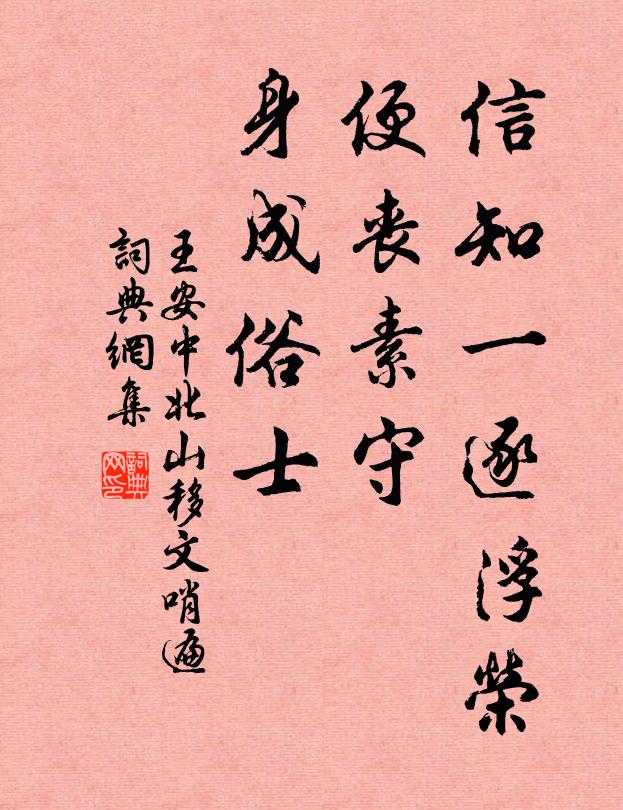 信知一逐浮榮
便喪素守
身成俗士
王安中北山移文哨遍
詞典網集
詞典網印